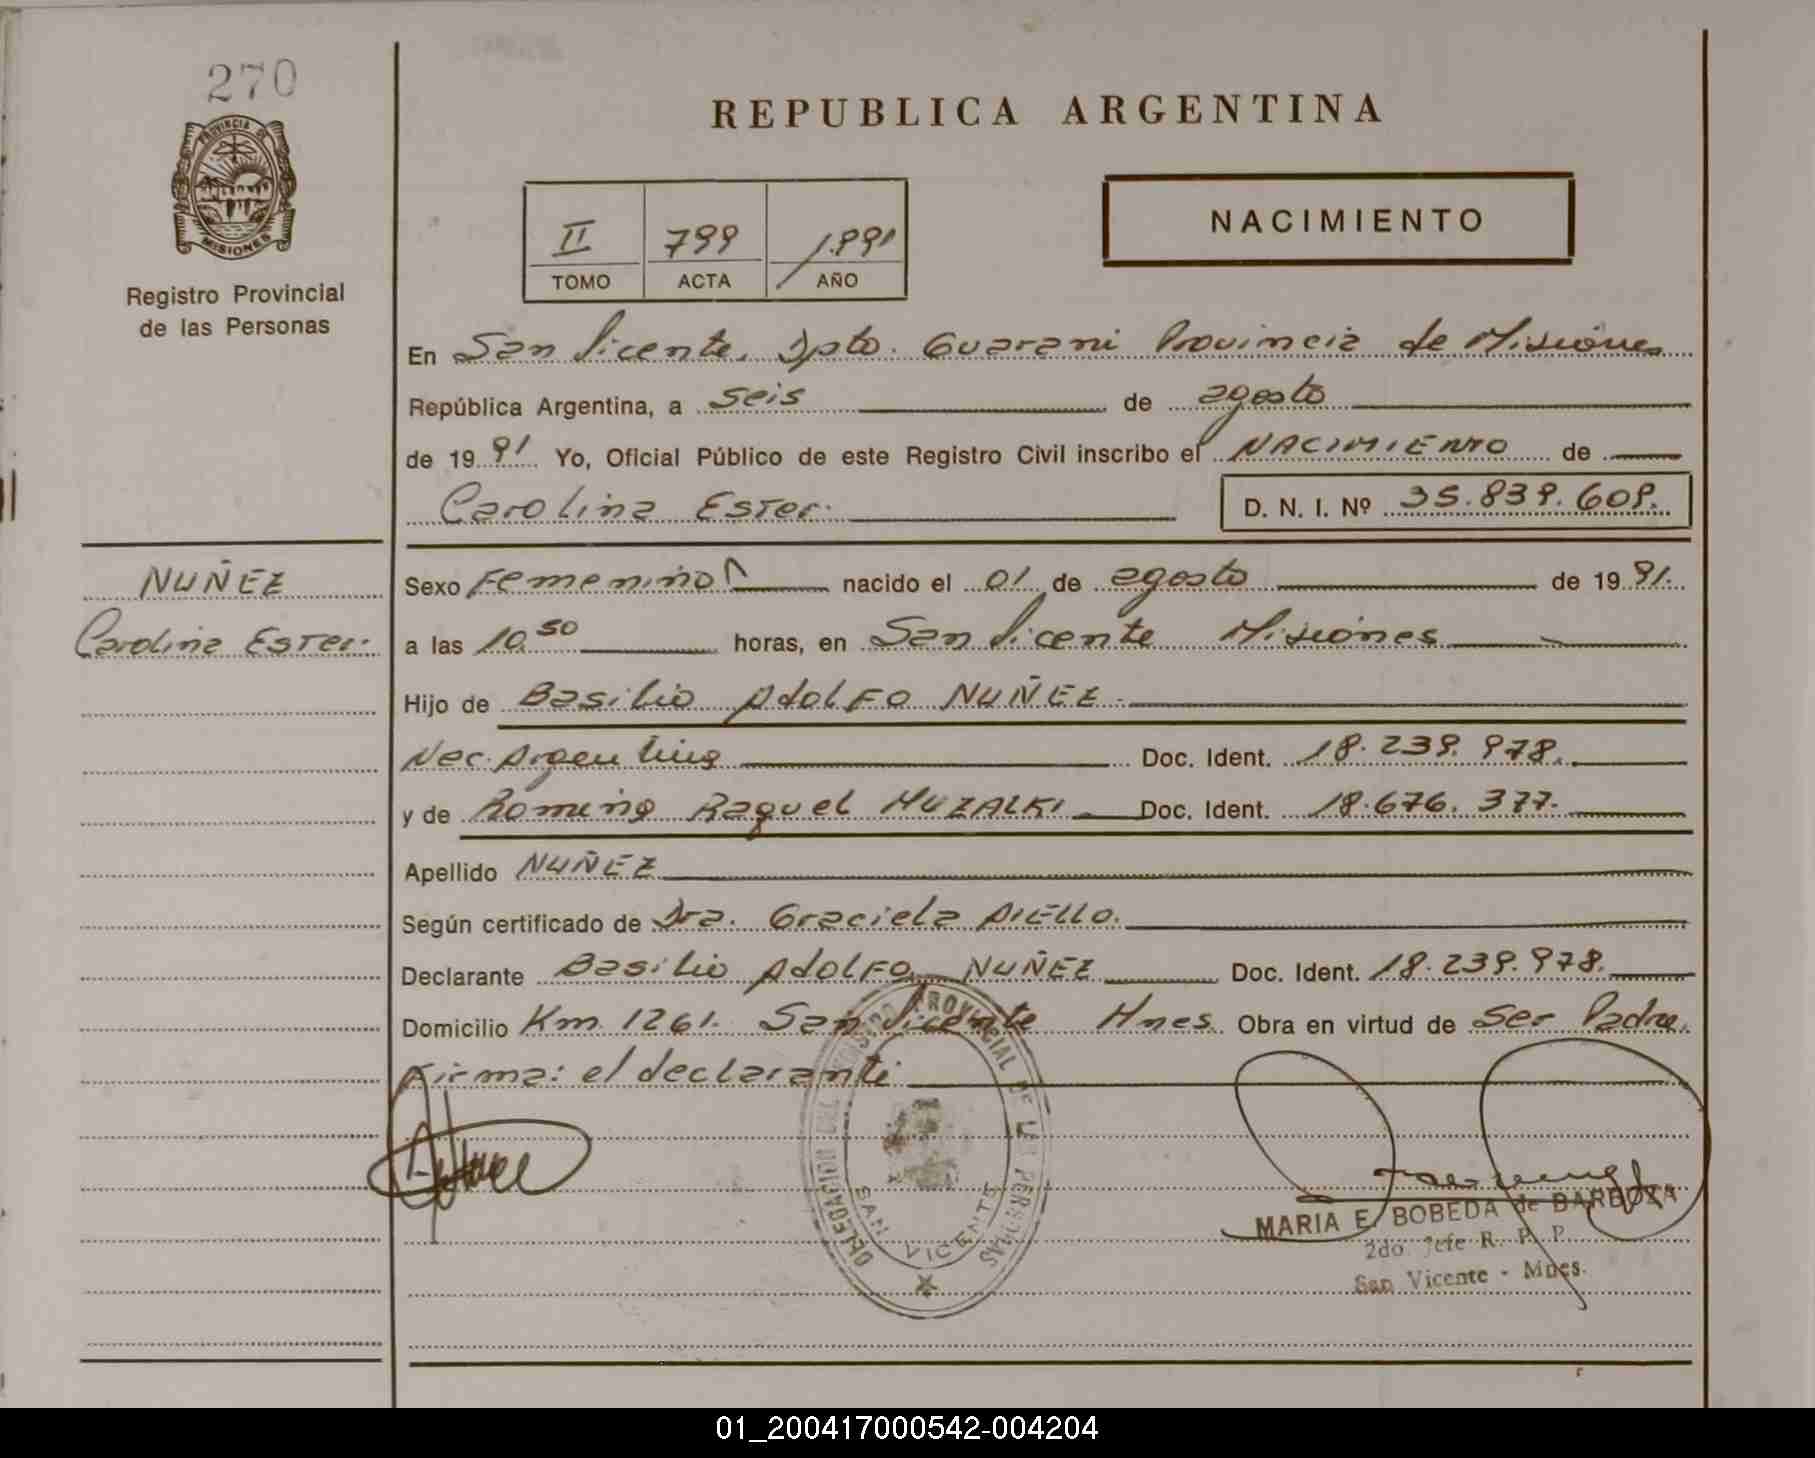 270
PROVINCIA DE
MISIONES
Registro Provincial
de las Personas
NUÑEZ
Carolina Ester.
REPUBLICA ARGENTINA
II 799 1.991
TOMO ACTA AÑO
NACIMIENTO
En San Vicente, Dpto. Guarani Provincia de Misiones
República Argentina, a seis de agosto
de 1991 Yo, Oficial Público de este Registro Civil inscribo el NACIMIENTO de
Carolina Ester. D. N. I. Nº 35.839.609.
Sexo Femenino nacido el 01 de agosto de 1991.
a las 10,50 horas, en San Vicente Misiones
Hijo de Basilio Adolfo NUÑEZ.
Nac. Argentina Doc. Ident. 18.239.978.
y de Romina Raquel MUZALKI Doc. Ident. 18.676.377.
Apellido NUÑEZ
Según certificado de Dra. Graciela AIELLO.
Declarante Basilio Adolfo NUÑEZ Doc. Ident. 18.239.978.
Domicilio Km 1261. San Vicente Mnes. Obra en virtud de Ser Padre.
Firma: el declarante
DELEGACION DEL REGISTRO PROVINCIAL DE LAS PERSONAS
SAN VICENTE
MARIA E. BOBEDA de BARBOZA
2do. Jefe R. P. P.
San Vicente - Mnes.
01_200417000542-004204